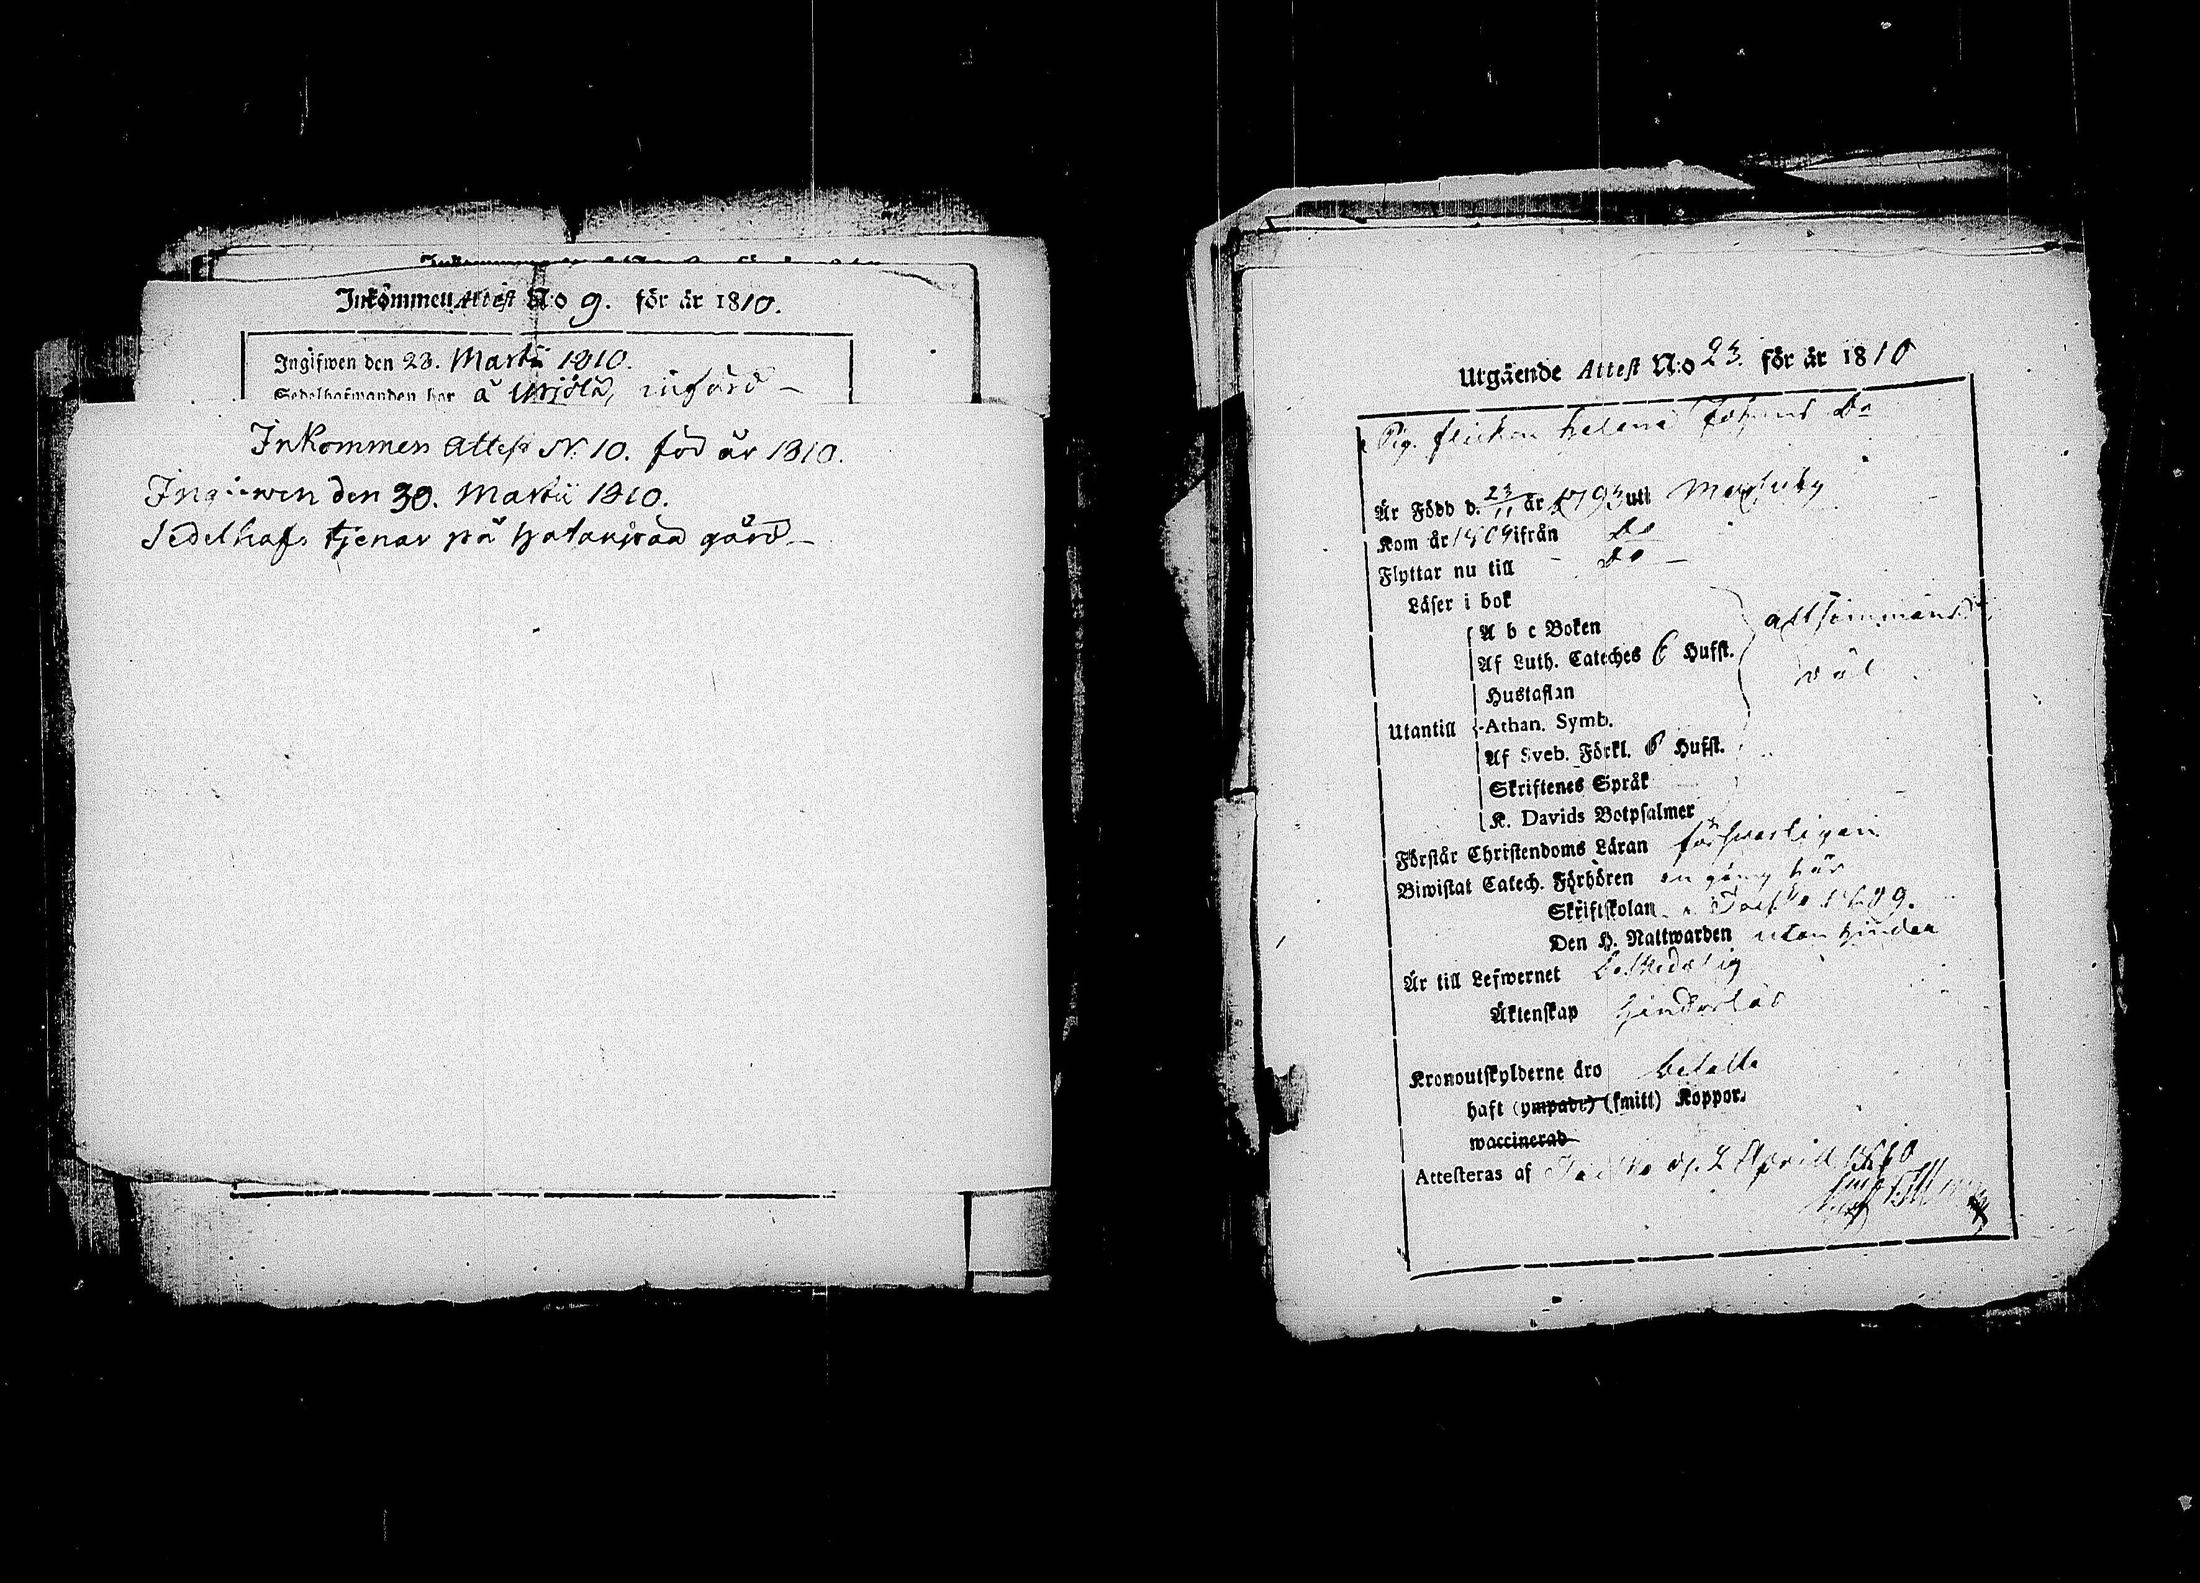 Inkommen Attest N:o 9. för år 1810.
Ingifwen den 23. Martii 1810.
Sedelhafwanden bor å Urjölä, införd
Inkommen Attest N. 10. för år 1810.
Ingifwen den 30. Martii 1810.
Sedelhafv tjenar på gård
Utgående Attest N:o 23. för år 1810
Pig. flickan Helena Johans Dr
Är Född d. 23/11 år 1793 uti
Kom år 1809 ifrån Do
Flyttar nu till Do
Läser i bok
A b c Boken
allsammans
Af Luth. Cateches 6 Hufst.
Hustaflan
väl
Utantill
Athan. Symb.
Af Sveb. Förkl. 6 Hufst.
Skriftenes Språk
K. Davids Botpsalmer
Förstår Christendoms Läran försvarligen
Biwistat Catech. Förhören en gång här
Skriftskolan 1809.
Den H. Nattwarden utan hinder
Är till Lefwernet beskedelig
Äktenskap hinderlös
Kronoutskylderne äro betalte
haft (ympade) (smitt) Koppor.
waccinerad
Attesteras af d. 2 April 1810